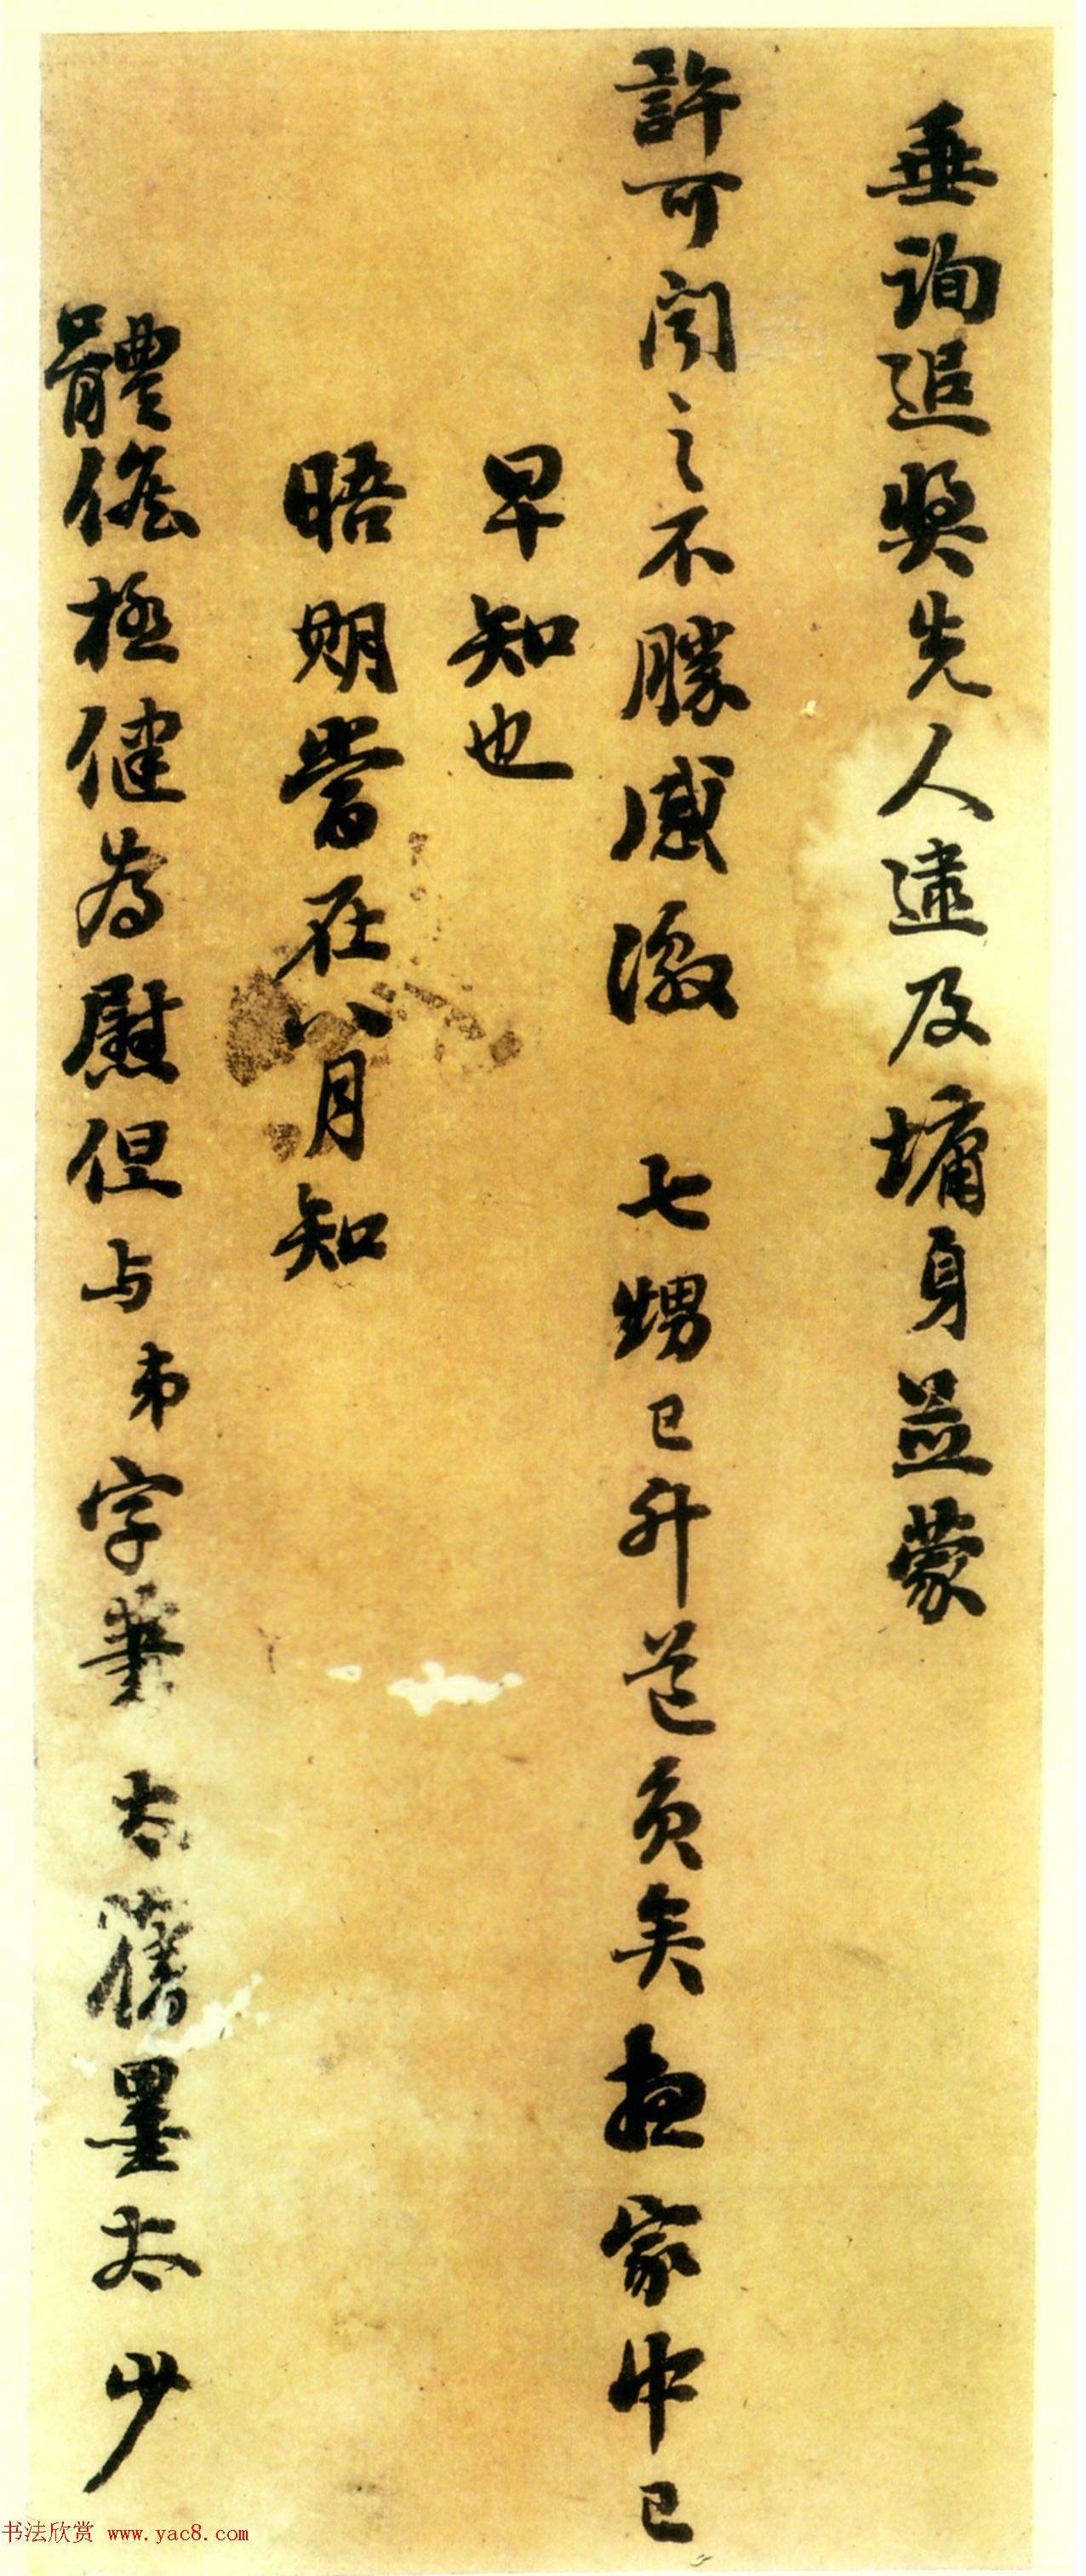 垂詢追奬先人逮及墉身並蒙
許可聞之不勝感激 七甥已升 道員矣想家中已
早知也
晤期當在八月知
體候極健為慰但与弟字筆太舊墨太少
书法欣赏 www.yac8.com